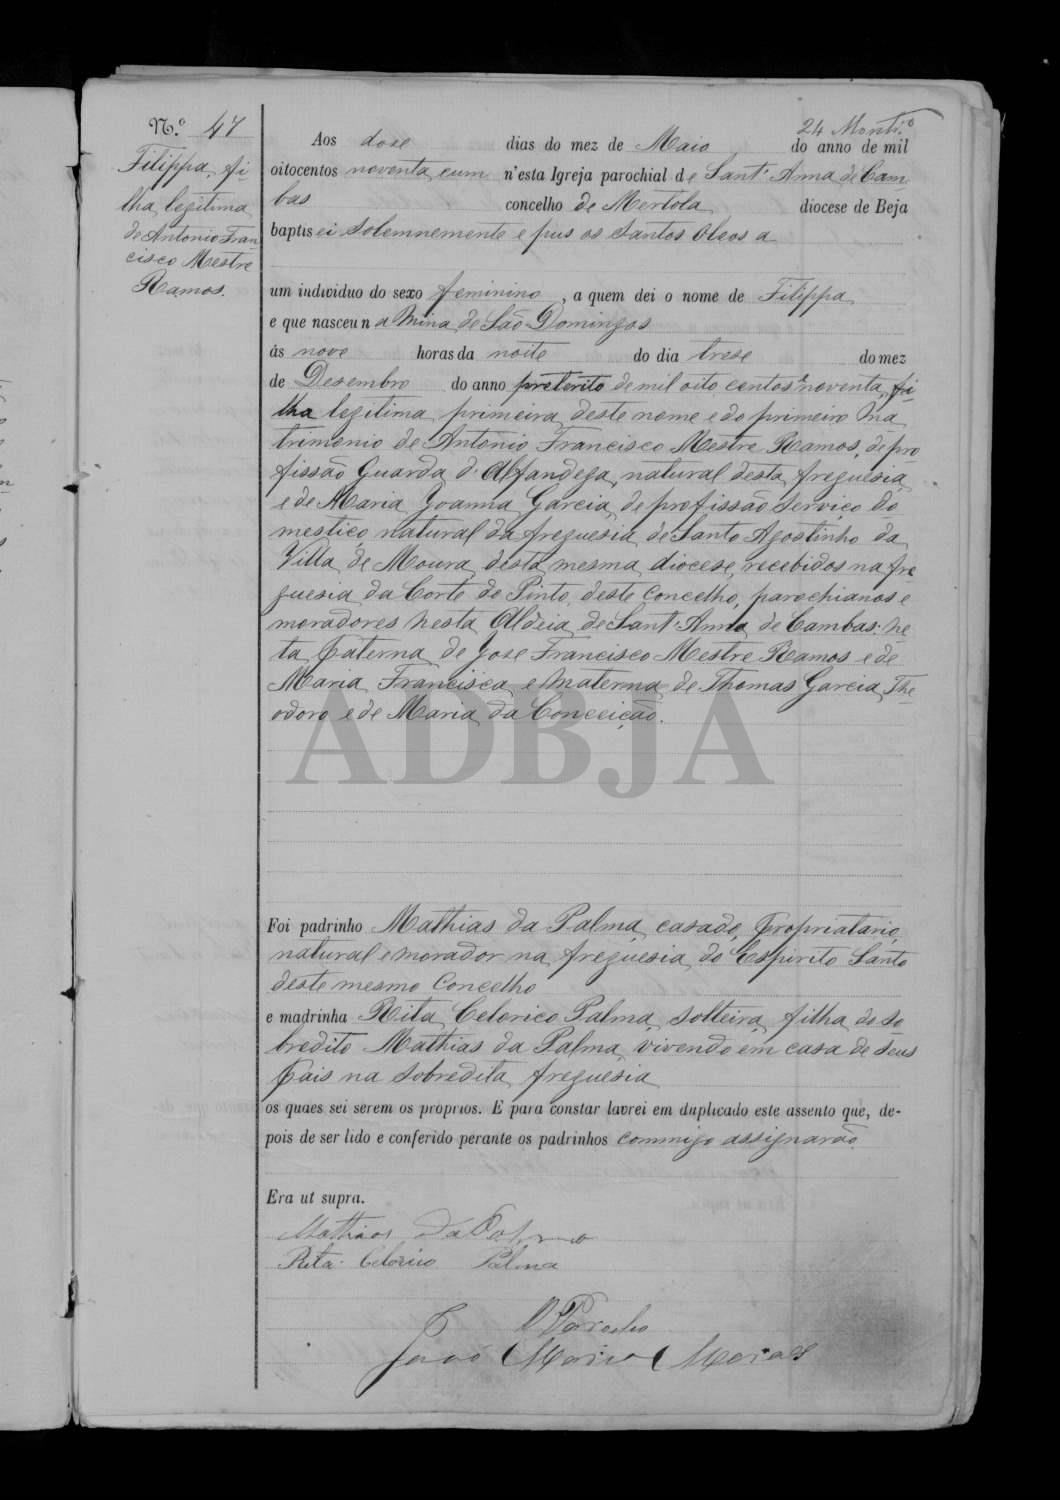 24 Monti.º
N.º 47
Filippa, fi-
lha legitima
de Antonio Fran
cisco Mestre
Ramos.
Aos dose dias do mez de Maio do anno de mil
oitocentos noventa e um n'esta Igreja parochial de Sant'Anna de Cam
bas concelho de Mertola diocese de Beja
baptisei solemnemente e pus os Santos Oleos a
um individuo do sexo feminino, a quem dei o nome de Filippa
e que nasceu na Mina de São Domingos
ás nove horas da noite do dia trese do mez
de Desembro do anno preterito de mil oito centos e noventa, fi-
lha legitima, primeira deste nome e do primeiro Ma
trimonio de Antonio Francisco Mestre Ramos, de pro
fissão Guarda d'Alfandega, natural desta freguesia
e de Maria Joanna Garcia, de profissão serviço do
mestico, natural da freguesia de Santo Agostinho da
Villa de Moura, desta mesma diocese, recebidos na fre
guesia da Corte do Pinto, deste Concelho, parochianos e
moradores nesta Aldeia de Sant'Anna de Cambas: ne
ta Paterna de Jose Francisco Mestre Ramos e de
Maria Francisca e Materna de Thomas Garcia The
odoro e de Maria da Conceição.
ADBJA
Foi padrinho Mathias da Palma, casado, Propriatario,
natural e morador na freguesia do Espirito Santo
deste mesmo Concelho
e madrinha Rita Celorico Palma, solteira, filha do so
bredito Mathias da Palma, vivendo em casa de seus
Pais na sobredita freguesia
os quaes sei serem os proprios. E para constar lavrei em duplicado este assento que, de-
pois de ser lido e conferido perante os padrinhos commigo assignarão.
Era ut supra.
Mathias da Palma
Rita Celorico Palma
O Parocho
João Maria Moraes